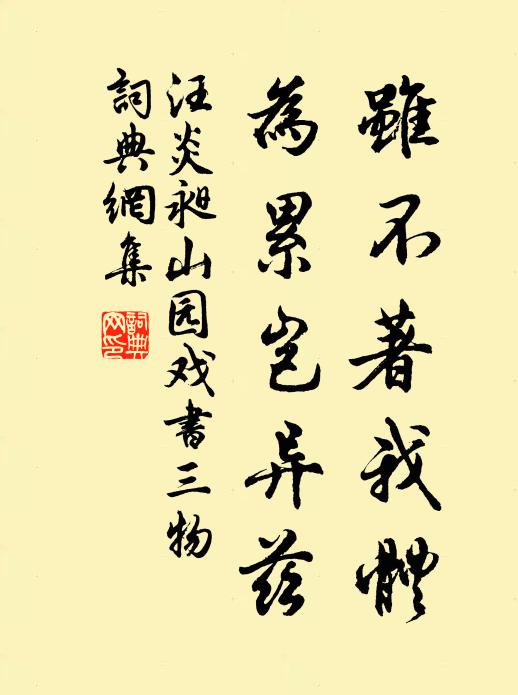 雖不著我體
為累豈异茲
汪炎昶山园戏書三物
詞典網集
詞典網印